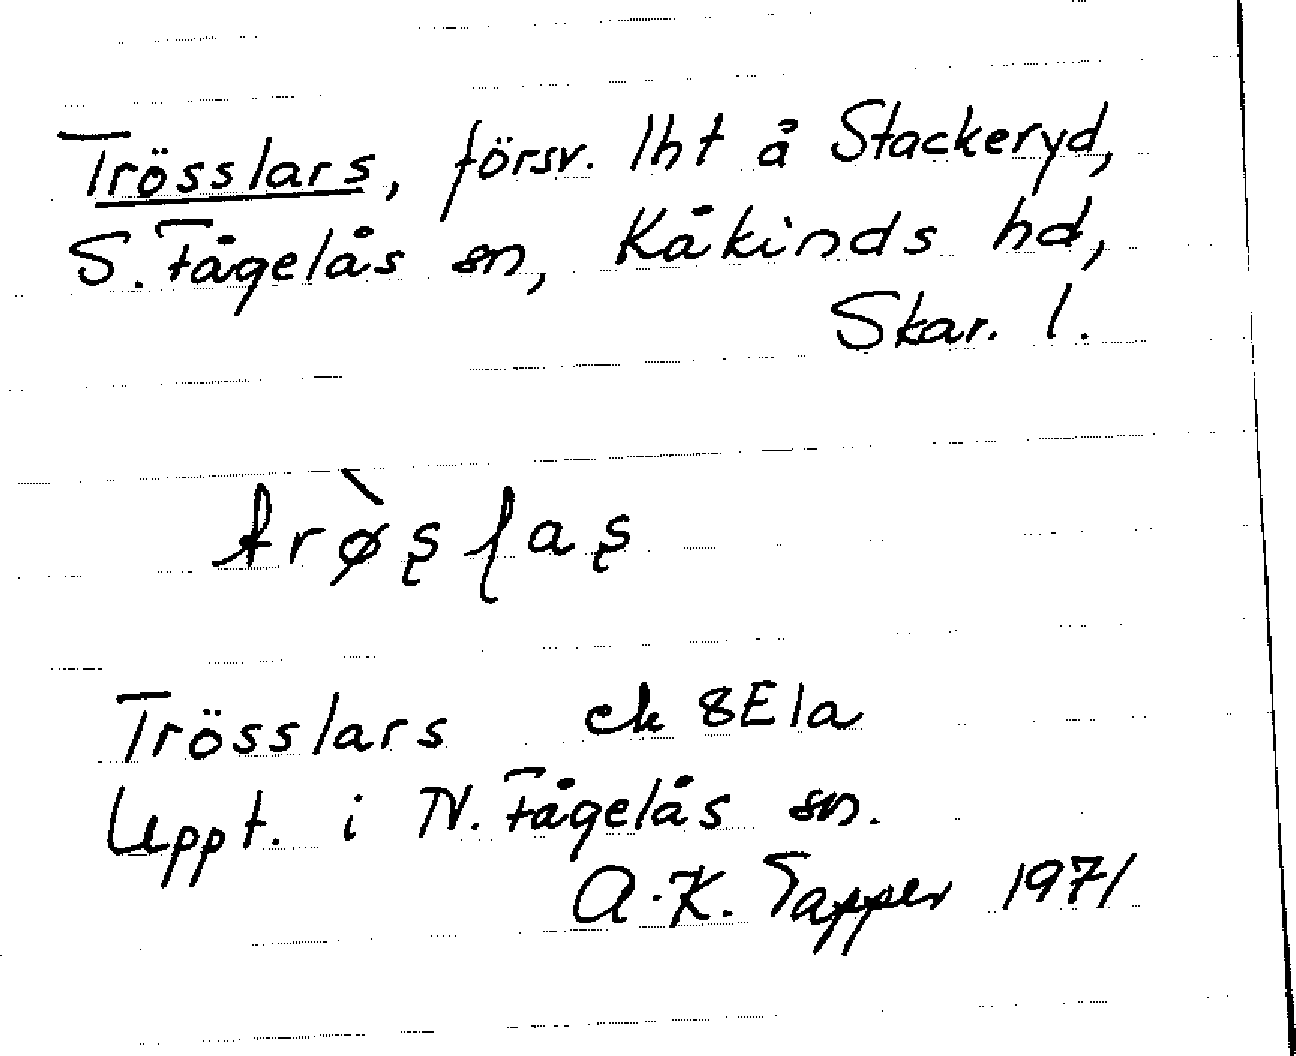 Trösslars, försv. lht å Stackeryd,
S. Fågelås sn, Kåkinds hd,
Skar. l.
Trösslars ek 8E1a
Uppt. i N. Fågelås sn.
A.K. Tapper 1971